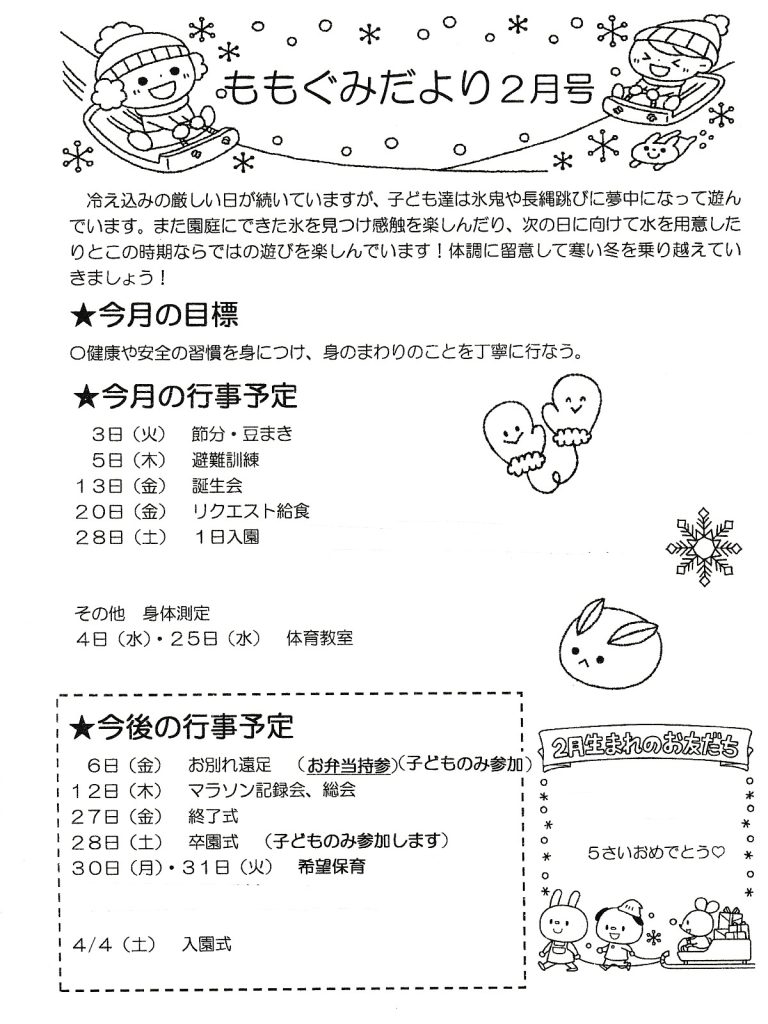 ももぐみだより２月号
　冷え込みの厳しい日が続いていますが、子ども達は氷鬼や長縄跳びに夢中になって遊ん
でいます。また園庭にできた氷を見つけ感触を楽しんだり、次の日に向けて水を用意した
りとこの時期ならではの遊びを楽しんでいます！体調に留意して寒い冬を乗り越えてい
きましょう！
★今月の目標
○健康や安全の習慣を身につけ、身のまわりのことを丁寧に行なう。
★今月の行事予定
３日（火）　節分・豆まき
５日（木）　避難訓練
１３日（金）　誕生会
２０日（金）　リクエスト給食
２８日（土）　１日入園
その他　身体測定
４日（水）・２５日（水）　体育教室
★今後の行事予定
６日（金）　お別れ遠足　（お弁当持参）（子どものみ参加）
１２日（木）　マラソン記録会、総会
２７日（金）　終了式
２８日（土）　卒園式　（子どものみ参加します）
３０日（月）・３１日（火）　希望保育
４/４（土）　入園式
２月生まれのお友だち
５さいおめでとう♡